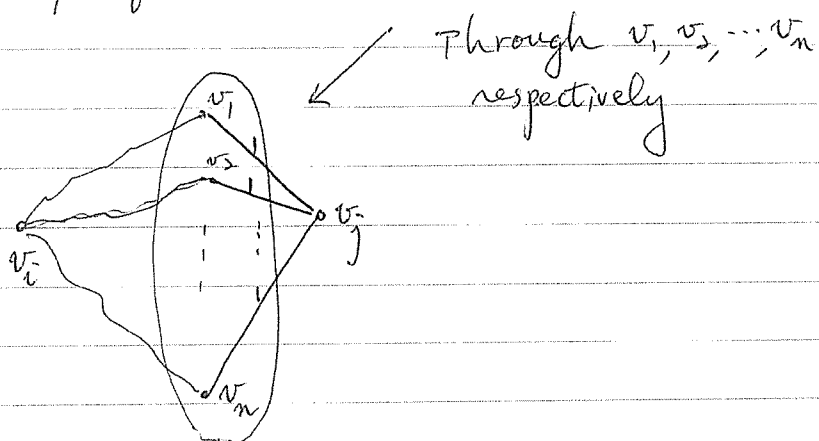 Through v₁, v₂, ⋯, vₙ
respectively
v₁
v₂
vⱼ
vᵢ
vₙ